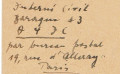 Interné Civil
Baraque 43
A 4 DC
par bureau postal
19, rue d'Alleray
Paris